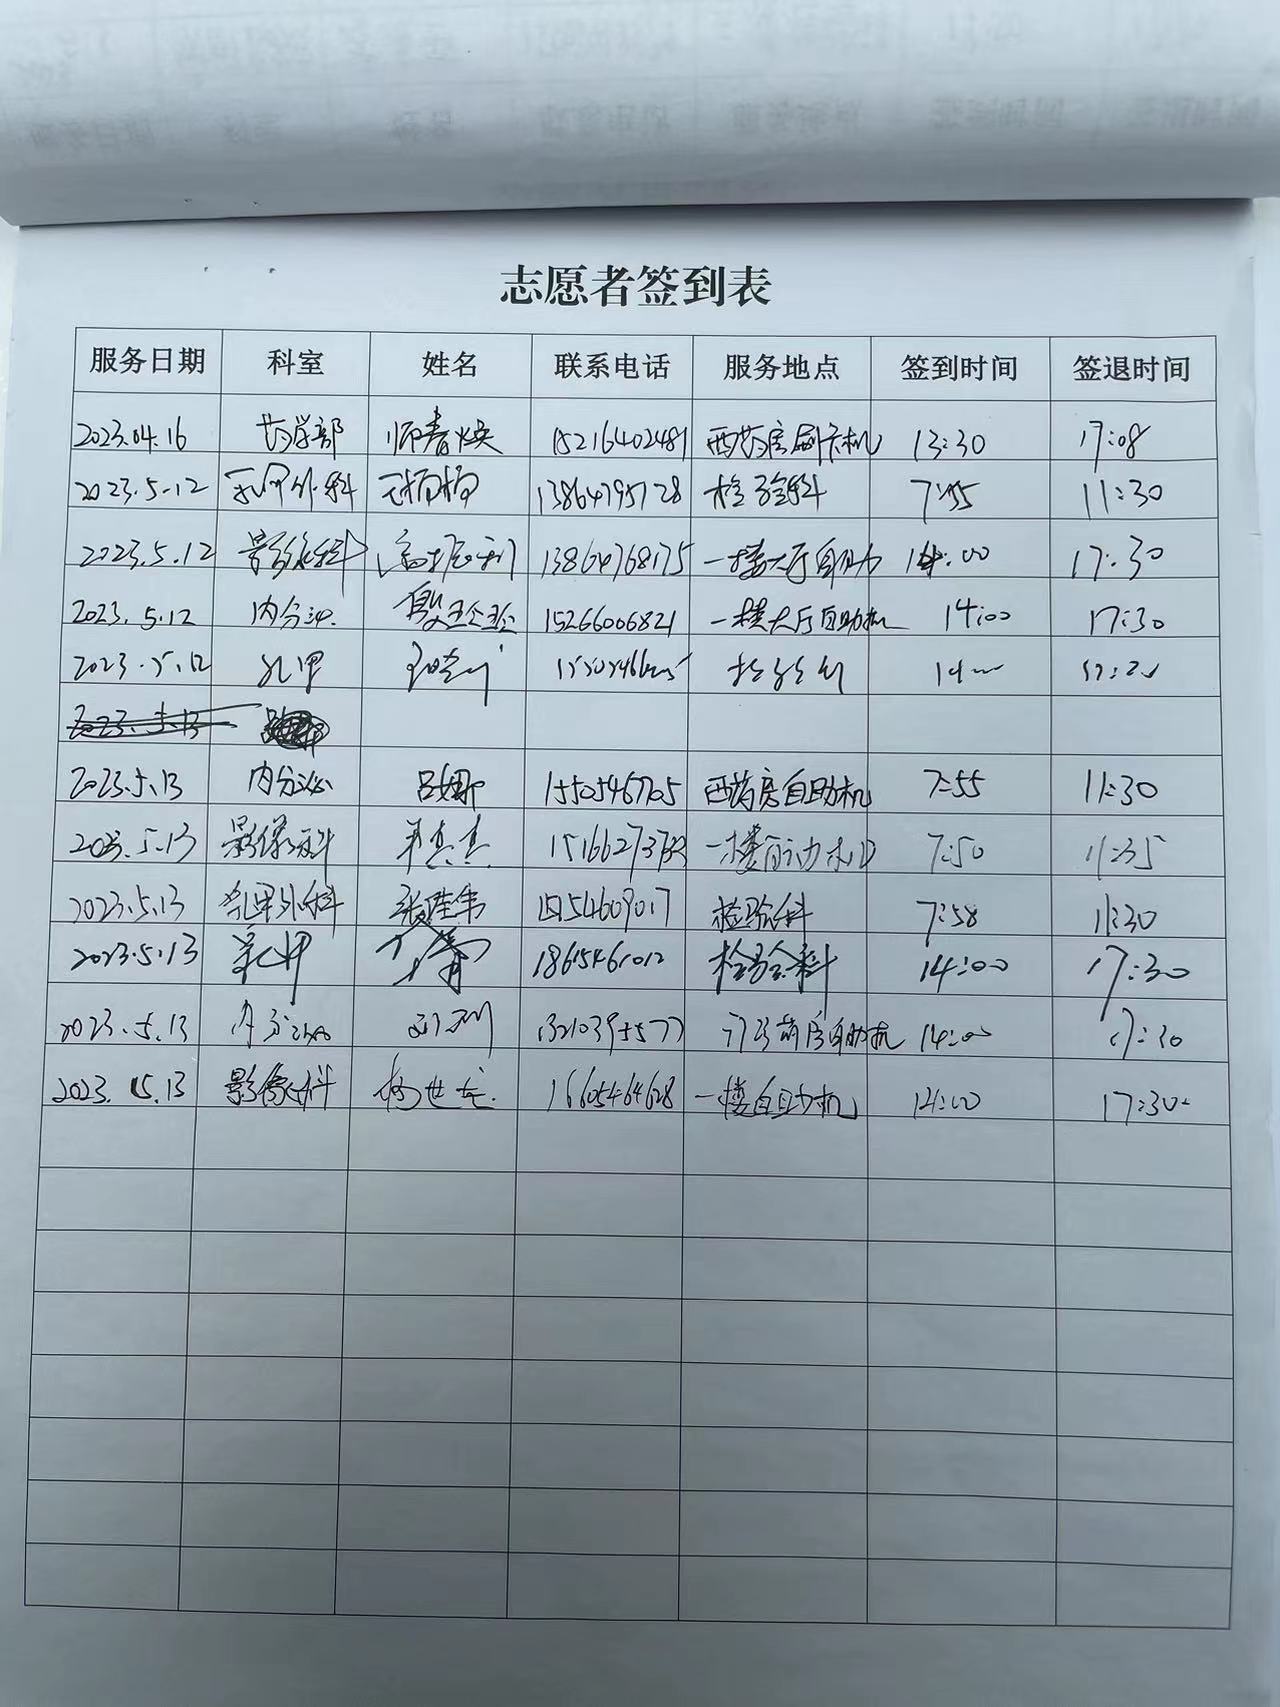 志愿者签到表
服务日期 科室 姓名 联系电话 服务地点 签到时间 签退时间
2023.04.16 药学部 师春焕 15216402481 西药房刷卡机 13:30 17:08
2023.5.12 乳甲外科 13864795728 检验科 7:55 11:30
2023.5.12 影像科 13864768175 一楼大厅自助 14:00 17:30
2023.5.12 内分泌 15266006821 一楼大厅自助机 14:00 17:30
2023.5.12 乳甲 检验科
2023.5.13
2023.5.13 内分泌 吕娜 15505467705 西药房自助机 7:55 11:30
2023.5.13 影像科 一楼自动机 7:50 11:35
2023.5.13 乳甲外科 张陆伟 检验科 7:58 11:30
2023.5.13 乳甲 丁霄 18615461012 检验科 14:00 17:30
2023.5.13 内分泌 13210395577 门诊药房自助机 14:00 17:30
2023.5.13 影像科 杨世龙 16605464628 一楼自助机 14:00 17:30